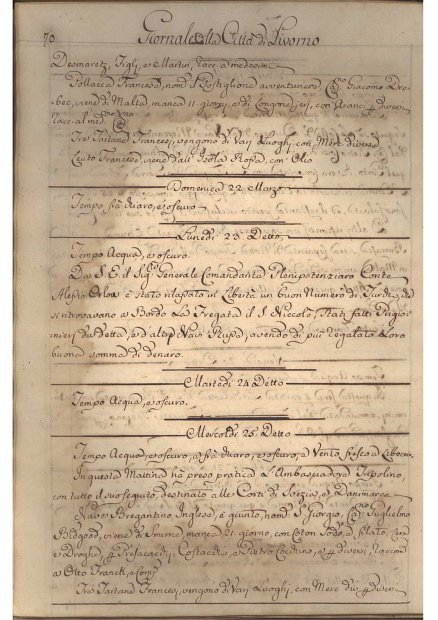 70 Giornale della Città di Livorno
Desmaretz, Figlj, e Martini, racc. a medesimi
Pollacca Francese, nom. il Postiglione avventurero Cap.no Giacomo
bec, viene di Malta, manca 11 giorni, e di Longone jeri, con diversi
racc. al med.mo Cap.no
Tre Tartane Francesi, vengono di Varj Luoghi, con Merc. diverse
Leuto Francese, viene dall'Isola Rossa, con Olio
Domenica 22 Marzo
Tempo frà chiaro, e oscuro
Lunedì 23 Detto
Tempo Acqua, e oscuro.
Da S. E. il Sig.re Generale Comandante Plenipotenziaro Conte
Alessio Orlow è stato rilasciato in libertà un buon Numero di Turchi, che
si ritrovavano a Bordo La Fregata il S. Niccolò, stati fatti Prigio-
nieri da detta, e d'altre Navi Russe, avendo di più regalato Loro
buona somma di denaro.
Martedì 24 Detto
Tempo Acqua, e oscuro.
Mercoldì 25 Detto
Tempo Acqua, e oscuro, e frà chiaro, e oscuro, e Vento fresco a Libeccio
In questa Mattina hà preso pratica L'Ambasciadora
con tutto il suo seguito, destinato alle Corti di Svezia, e Danimarca
Nave Bregantino Inglese, è giunto, nom. S. Giorgio, Cap.no Guglielmo
Bedgood, viene di Smirne, manca 21 giorno, con Coton Sodo, e filato, Cera
e Droghe, e diversi, raccom.
a Otto Franck, e Comp.
Tre Tartane Francesi, vengono di Varj Luoghi, con Merc. div. e diversi